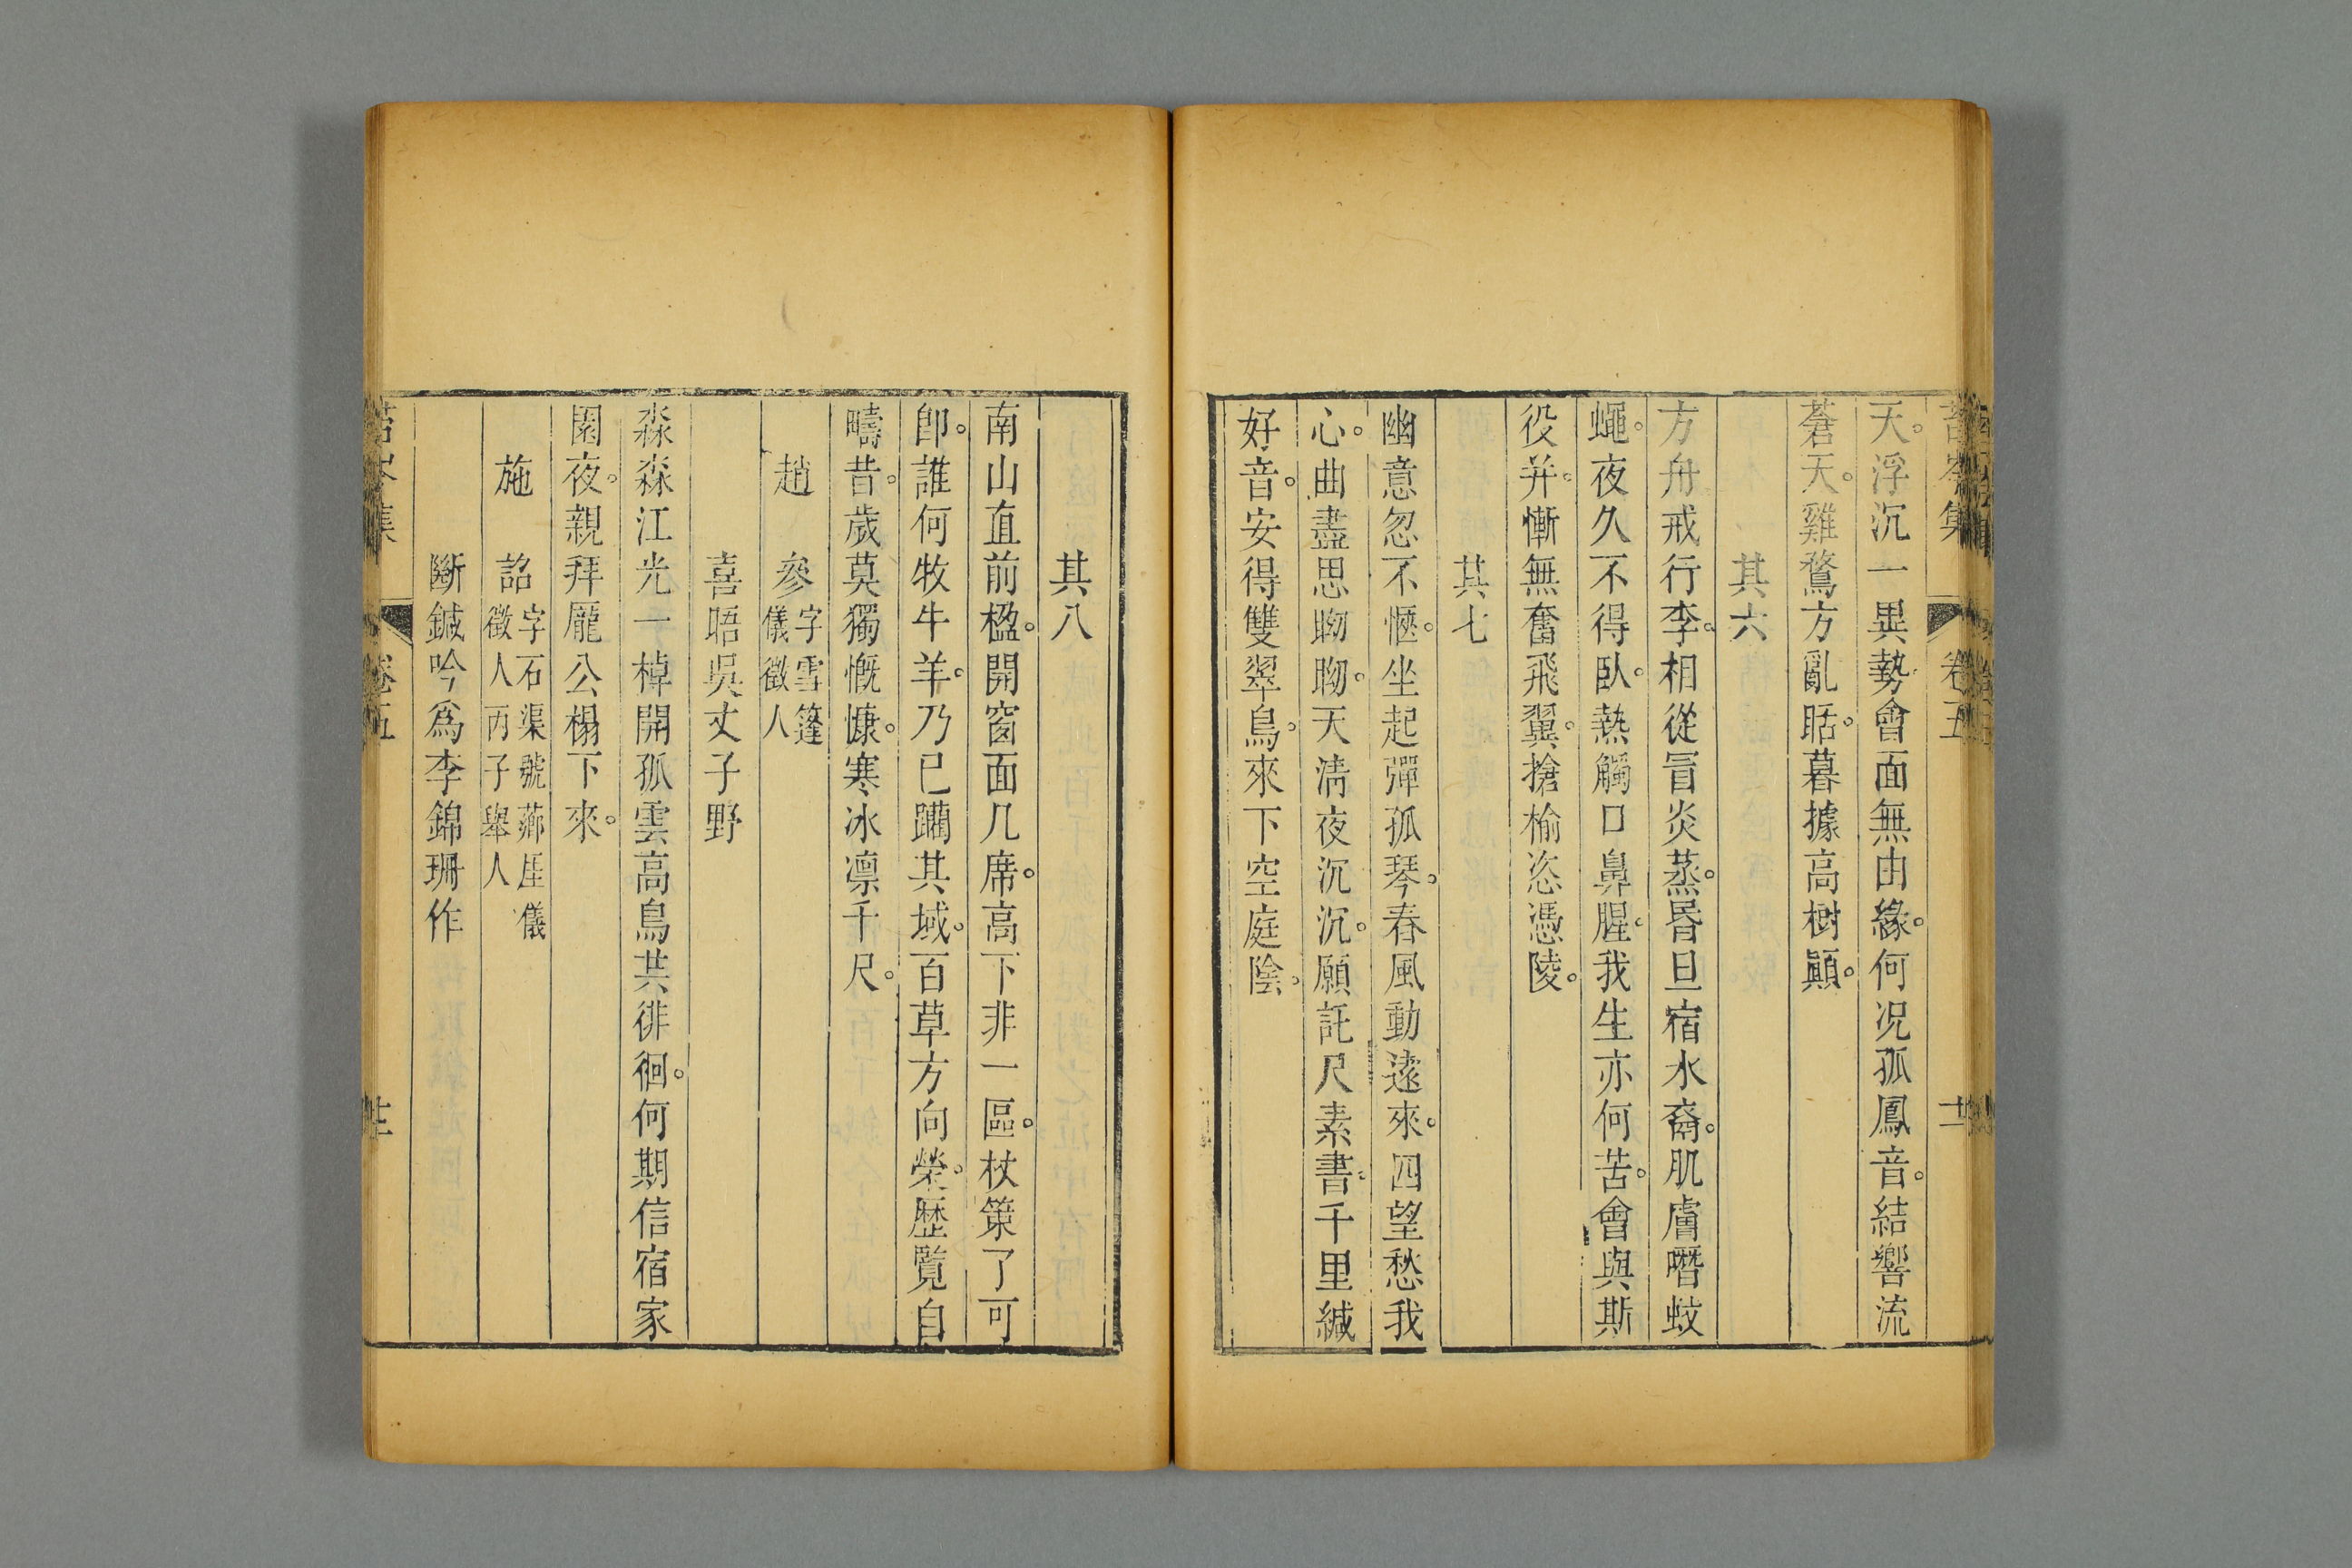 苔岑集 卷五 十二
天。浮沉一異勢會面無由緣。何况孤鳳音。結響流
蒼天。雞鶩方亂聒。暮據高樹顚。
其六
方舟戒行李。相從冒炎蒸。昏旦宿水裔。肌膚噆蚊
蠅。夜久不得臥。熱觸口鼻腥。我生亦何苦。會與斯
役并。慚無奮飛翼。搶榆恣憑陵。
其七
幽意忽不愜。坐起彈孤琴。春風動遠來。四望愁我
心。曲盡思眑眑。天淸夜沉沉。願託尺素書。千里緘
好音。安得雙翠鳥。來下空庭陰。
其八
南山直前楹。開窗面几席。高下非一區。杖策了可
卽。誰何牧牛羊。乃已躪其域。百草方向榮。歷覽自
疇昔。歲莫獨慨慷。寒冰凛千尺。
趙 參 字雪篷儀徵人
喜晤吳丈子野
淼淼江光一棹開孤雲高鳥共徘徊。何期信宿家
園夜。親拜龐公榻下來。
施 詔 字石渠號薌厓儀徵人丙子舉人
斷鍼吟爲李錦珊作
苔岑集 卷五